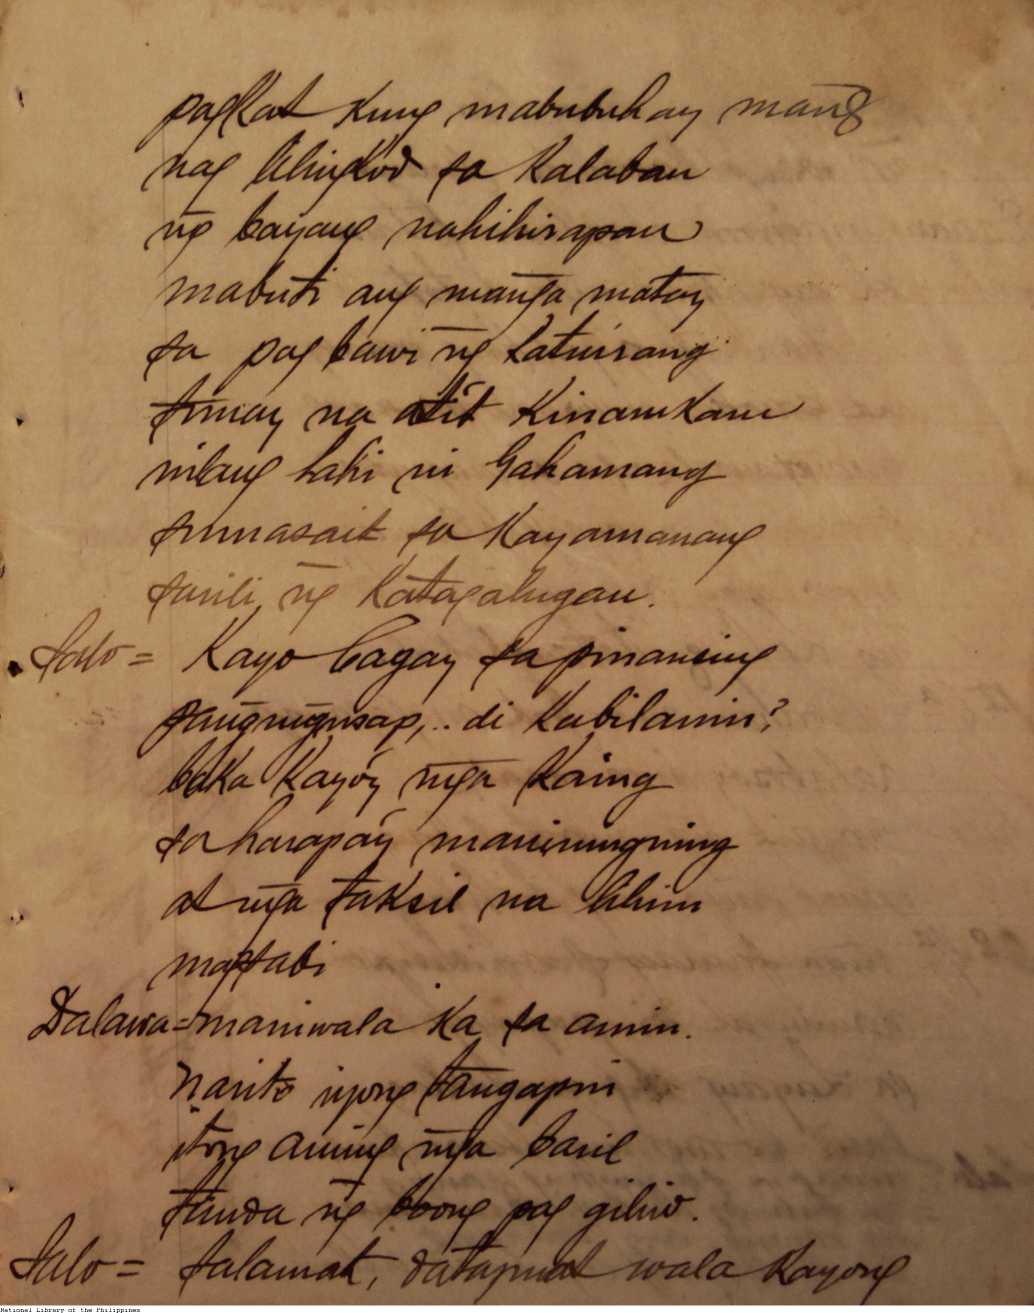 pagkat kung mabubuhay mang
nag lilingkod sa kalaban
ng̃ bayang nahihirapan
mabuti ang mang̃a matay
sa pag bawi ng̃ katuirang
tunay na atit kinamkam
nilang lahi ni gahamang
sumasait sa kayamanang
sarili ng̃ katagalugan.
Salo = Kayo bagay sa
pang̃ung̃usap,.. di kabilanin?
baka kayóy mg̃a kaing
sa harapáy maniningning
at mg̃a taksil na lihim
magsabi
Dalawa = maniwala ka sa amin.
narito inyong tangapin
itong aming mg̃a baril
tanda ng̃ boong pag giliw.
Salo = Salamat, datapuat wala kayong
National Library of the Philippines